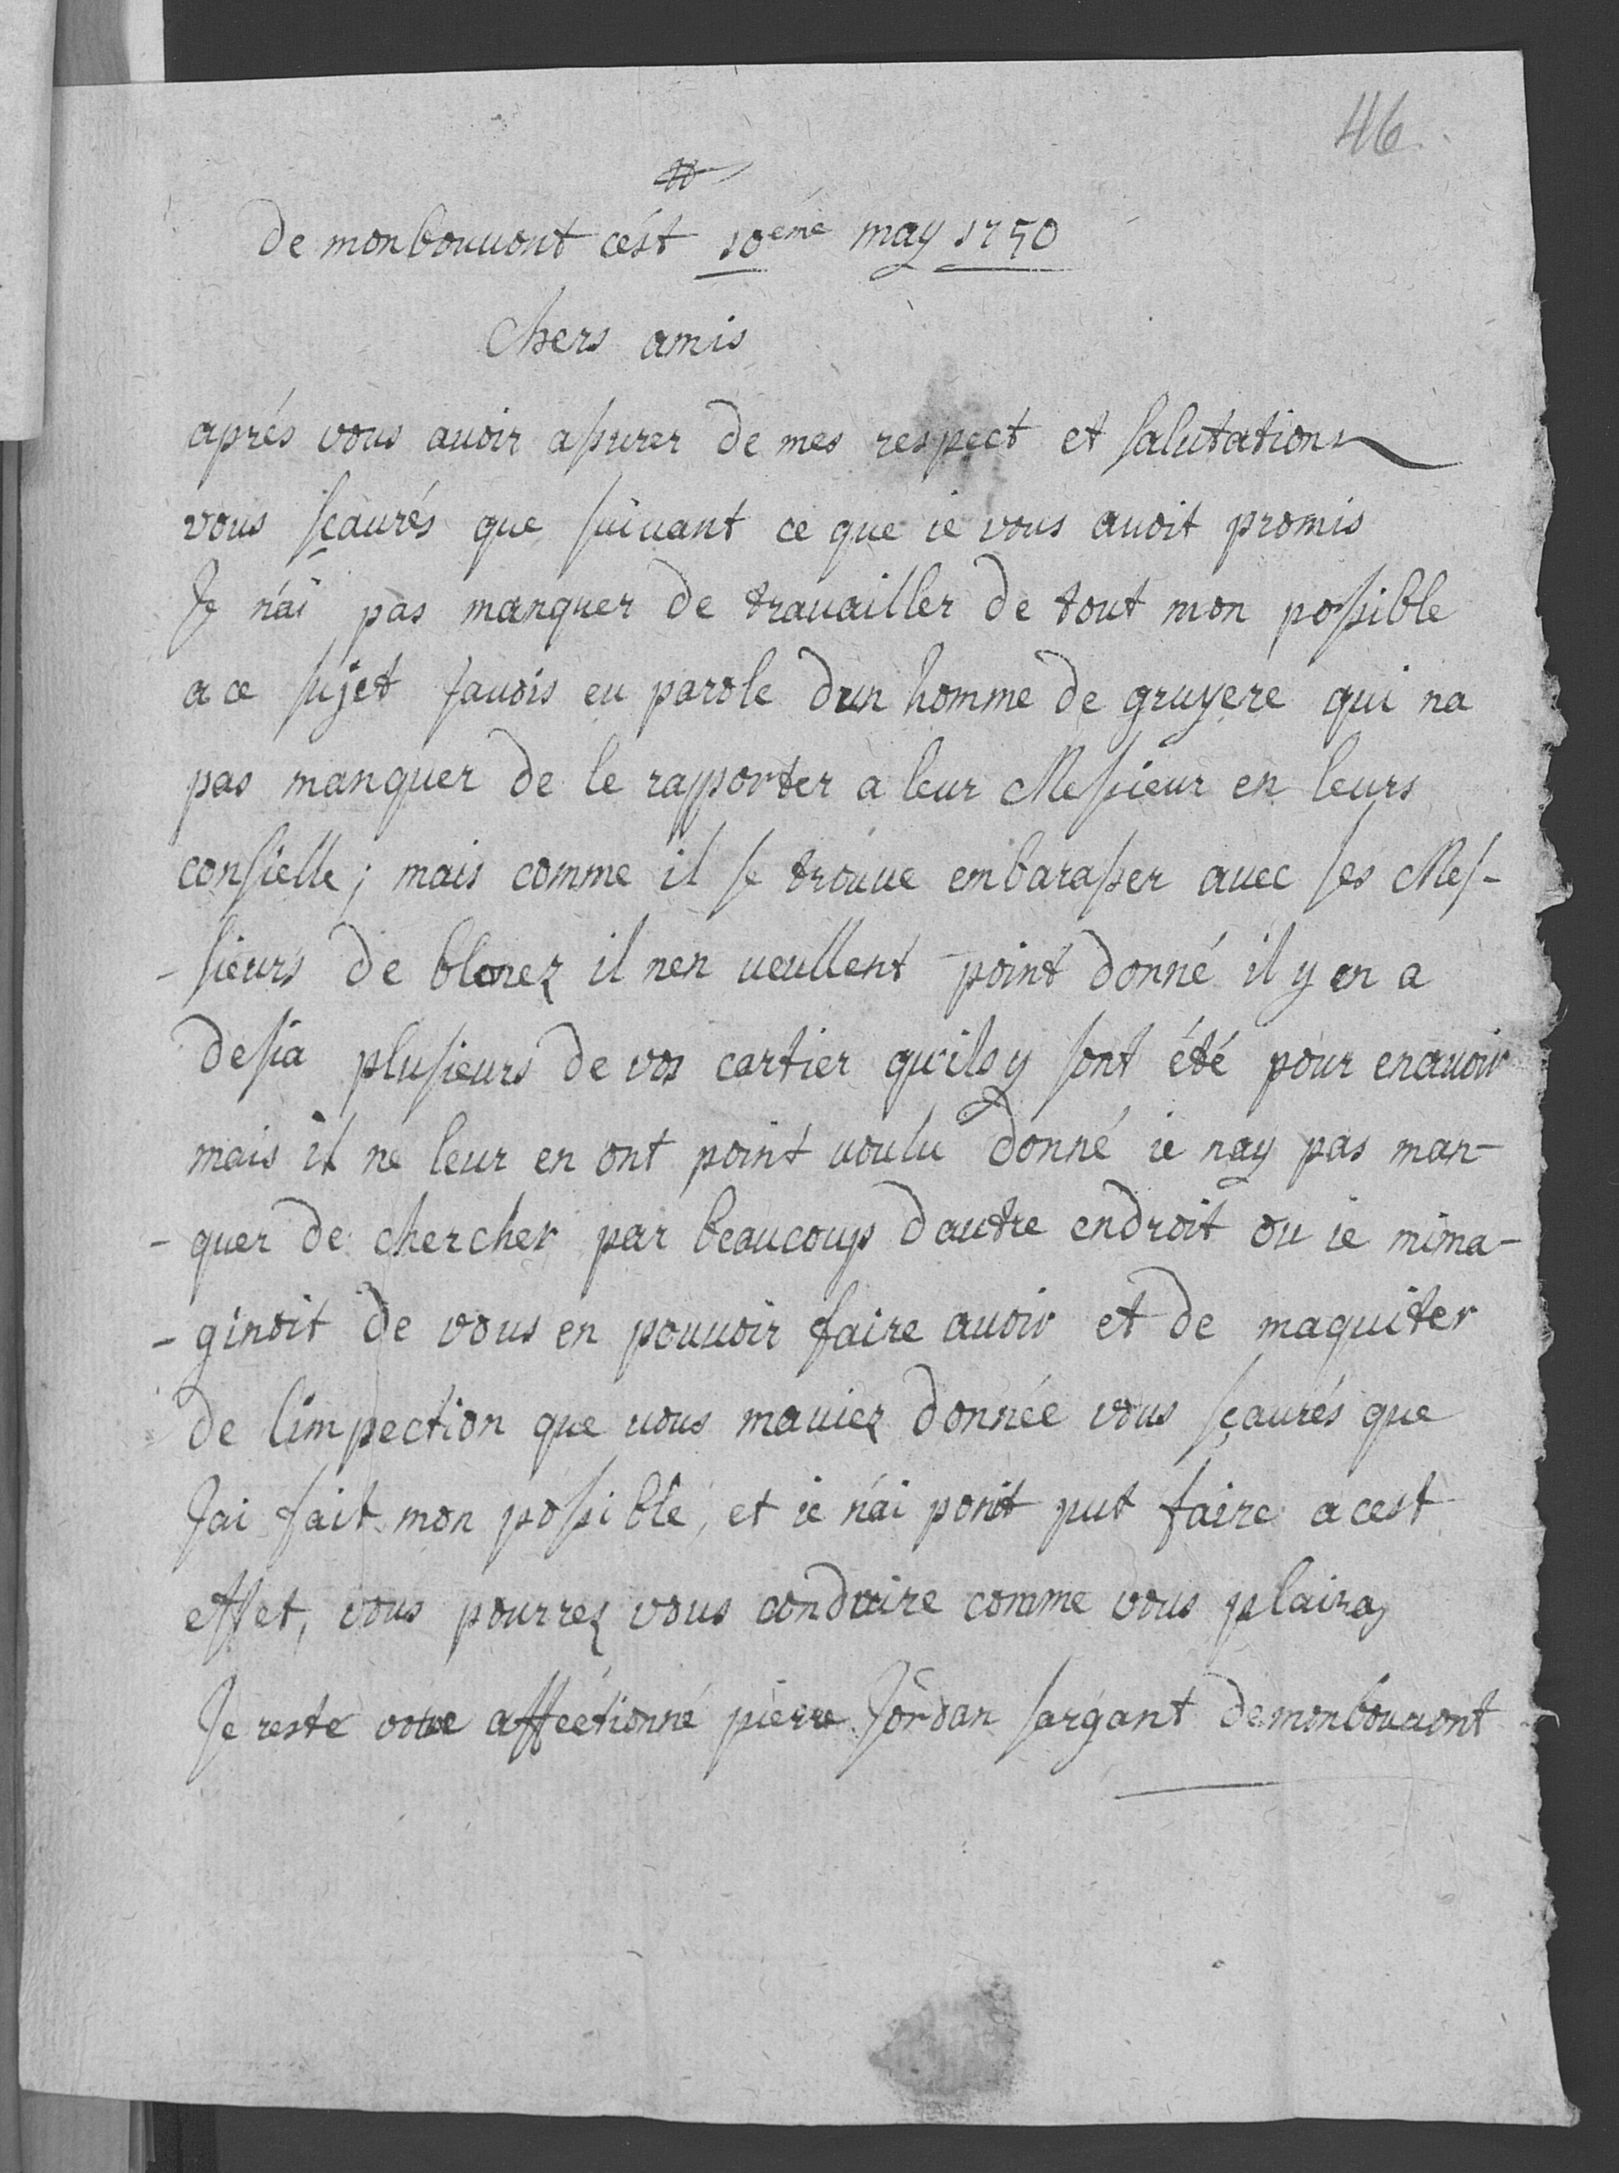 46.
de monbouuont cést 10eme may 1750
chers amis
aprés vous auoir assurer de mes respect et salutations
vous sçaurés que suiuant ce que ie vous auoit promis
Je n'ai pas manquer de trauailler de tout mon possible
a ce sujet Jauois eu parole d'un homme de gruyere qui na
pas manquer de le rapporter a leur Messieur en leurs
consielle; mais comme il se trouue embarasser auec ses Mes-
-sieurs de blonez il nen ueullent point donné il y en a
desia plusieurs de vos cartier qu'ils y sont été pour enauoir
mais il ne leur en ont point uoulu donné ie nay pas man-
-quer de chercher par beaucoup dautre endroit ou ie mima-
-ginoit de vous en pouuoir faire auoir et de maquiter
de limpection que uous mauiez donnée vous sçaurés que
Jai fait mon possible, et ie n'ai ponit put faire a cest
effet, vous pourrez vous conduire comme vous plaira,
Je reste votre affectionné pierre Jordan sargant demonbouuont